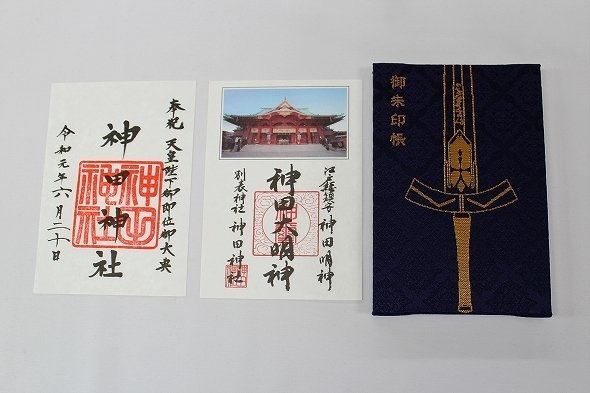 奉祝 天皇陛下御即位御大典
神田神社
神田神社
令和元年六月二十日
江戸総鎮守 神田明神
神田大明神
別表神社 神田神社
御朱印帳